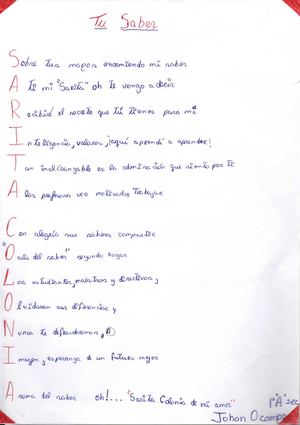 Tu Saber
Sobre tus manos encomiendo mi saber
A ti mi "Sarita" oh te vengo a decir
Recibiré el secreto que tú tienes para mí
Inteligencia, valores, ¡aquí aprendí a aprender!
Tan inalcanzable es la admiración que siento por ti
A los profesores veo motivados Trabajar
Con alegría sus saberes compartir
"Oasis del saber" segundo hogar
Los estudiantes, maestros y directivos,
Olvidaron sus diferencias y
Nunca te defraudaremos,
Imagen, esperanza de un futuro mejor
Aroma del saber oh!... "Sarita Colonia de mi amor"
1° "A" sec
Johan Ocampo